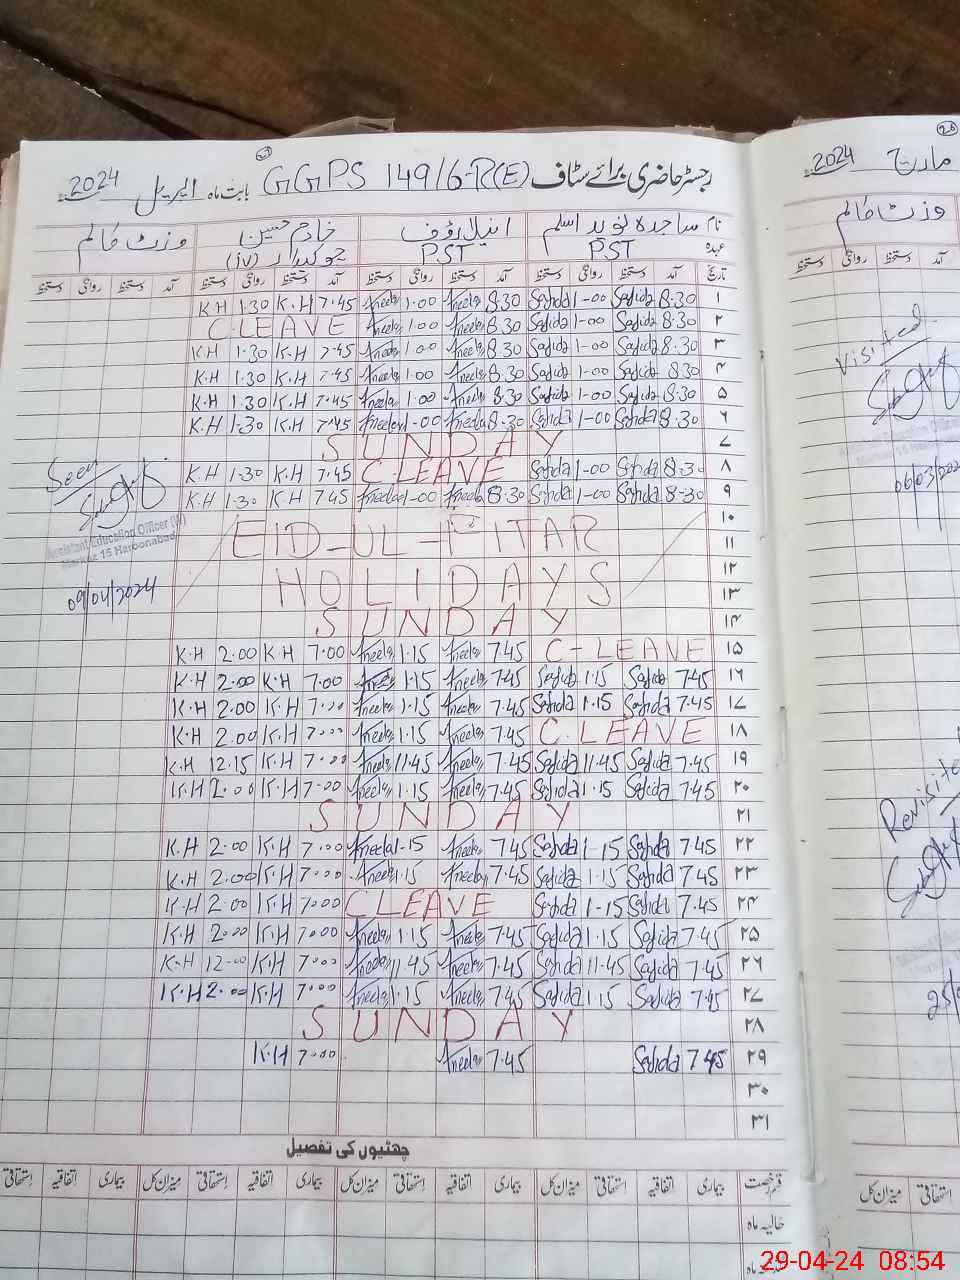 رجسٹر حاضری برائے سٹاف GGPS 149/6-R(E) بابت ماہ اپریل 2024
نام ساجدہ نوید اسلم انیلا رؤف خادم حسین وزٹ کالم
عہدہ PST PST چوکیدار (iv)
تاریخ آمد دستخط روانگی دستخط آمد دستخط روانگی دستخط آمد دستخط روانگی دستخط آمد دستخط روانگی دستخط
۱ 8.30 Sajida 1-00 Sajida 8.30 Aneela 1.00 Aneela 7.45 K.H 1.30 K.H
۲ 8.30 Sajida 1-00 Sajida 8.30 Aneela 1.00 Aneela C.LEAVE
۳ 8.30 Sajida 1-00 Sajida 8.30 Aneela 1.00 Aneela 7.45 K.H 1.30 K.H
۴ 8.30 Sajida 1-00 Sajida 8.30 Aneela 1.00 Aneela 7.45 K.H 1.30 K.H
۵ 8.30 Sajida 1-00 Sajida 8.30 Aneela 1.00 Aneela 7.45 K.H 1.30 K.H
۶ 8.30 Sajida 1-00 Sajida 8.30 Aneela 1-00 Aneela 7.45 K.H 1.30 K.H
۷ SUNDAY
۸ 8.30 Sajida 1-00 Sajida C.LEAVE 7.45 K.H 1-30 K.H
۹ 8-30 Sajida 1-00 Sajida 8.30 Aneela 1-00 Aneela 7.45 K.H 1.30 K.H
Seen
Assistant Education Officer (W)
Markaz 15 Haroonabad
09/04/2024
۱۰
EID-UL-FITAR
۱۱
۱۲
HOLIDAYS
۱۳
۱۴ SUNDAY
۱۵ C-LEAVE 7.45 Aneela 1.15 Aneela 7.00 K.H 2.00 K.H
۱۶ 7.45 Sajida 1.15 Sajida 7.45 Aneela 1.15 Aneela 7.00 K.H 2.00 K.H
۱۷ 7.45 Sajida 1.15 Sajida 7.45 Aneela 1.15 Aneela 7.00 K.H 2.00 K.H
۱۸ C.LEAVE 7.45 Aneela 1.15 Aneela 7.00 K.H 2.00 K.H
۱۹ 7.45 Sajida 11.45 Sajida 7.45 Aneela 11.45 Aneela 7.00 K.H 12.15 K.H
۲۰ 7.45 Sajida 1.15 Sajida 7.45 Aneela 1.15 Aneela 7.00 K.H 2.00 K.H
۲۱ SUNDAY
۲۲ 7.45 Sajida 1-15 Sajida 7.45 Aneela 1-15 Aneela 7.00 K.H 2.00 K.H
۲۳ 7.45 Sajida 1.15 Sajida 7.45 Aneela 1.15 Aneela 7.00 K.H 2.00 K.H
۲۴ 7.45 Sajida 1-15 Sajida C LEAVE 7.00 K.H 2.00 K.H
۲۵ 7.45 Sajida 1.15 Sajida 7.45 Aneela 1.15 Aneela 7.00 K.H 2.00 K.H
۲۶ 7.45 Sajida 11.45 Sajida 7.45 Aneela 11.45 Aneela 7.00 K.H 12-00 K.H
۲۷ 7.45 Sajida 1.15 Sajida 7.45 Aneela 1.15 Aneela 7.00 K.H 2.00 K.H
۲۸ SUNDAY
۲۹ 7.45 Sajida 7.45 Aneela 7.00 K.H
۳۰
۳۱
چھٹیوں کی تفصیل
قسم رخصت بیماری اتفاقیہ استحقاقی میزان کل بیماری اتفاقیہ استحقاقی میزان کل بیماری اتفاقیہ استحقاقی میزان کل بیماری اتفاقیہ استحقاقی
حالیہ ماہ
ماہ
26
مارچ 2024
وزٹ کالم
دستخط روانگی دستخط
Visited
Assistant Education Officer
Markaz 15 Haroonabad
06/03/202
Revisite
25/
استحقاقی میزان کل
29-04-24 08:54